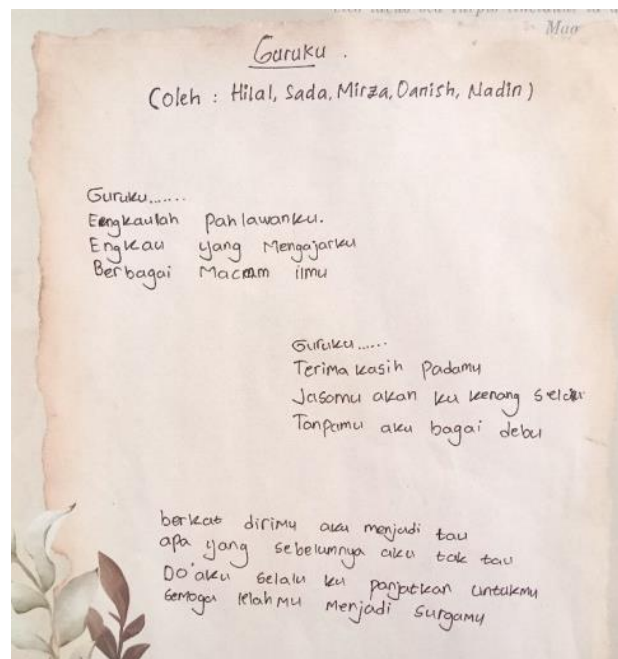 Mag
Guruku .
(oleh : Hilal, Sada, Mirza, Danish, Nadin)
Guruku.......
Engkaulah Pahlawanku.
Engkau yang Mengajarku
Berbagai Macam ilmu
Guruku......
Terima kasih Padamu
Jasamu akan ku kenang selalu
Tanpamu aku bagai debu
berkat dirimu aku menjadi tau
apa yang sebelumnya aku tak tau
Do'aku selalu ku panjatkan untukmu
Semoga lelahmu Menjadi Surgamu